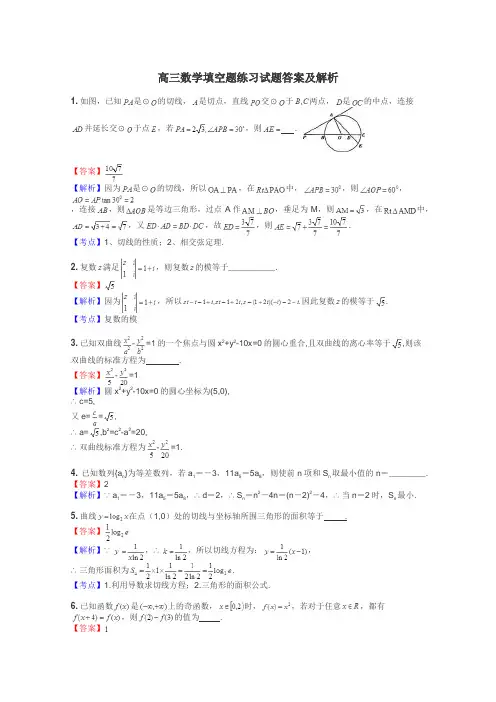 高三数学填空题练习试题答案及解析
1. 如图，已知PA是⊙O的切线，A是切点，直线PO交⊙O于B,C两点，D是OC的中点，连接
AD并延长交⊙O于点E，若PA=2√3,∠APB=30°，则AE=　　．
【答案】10√7/7
【解析】因为PA是⊙O的切线，所以OA⊥PA，在Rt△PAO中，∠APB=30°，则∠AOP=60°，
AO=APtan30°=2
，连接AB，则△AOB是等边三角形，过点A作AM⊥BO，垂足为M，则AM=√3，在Rt△AMD中，
AD=√3+4=√7，又ED·AD=BD·DC，故ED=3√7/7，则AE=√7+3√7/7=10√7/7．
【考点】1、切线的性质；2、相交弦定理.
2. 复数z满足|z i; 1 i|=1+i，则复数z的模等于__________．
【答案】√5
【解析】因为|z i; 1 i|=1+i，所以zi-i=1+i,zi=1+2i,z=(1+2i)(-i)=2-i.因此复数z的模等于√5．
【考点】复数的模
3. 已知双曲线x²/a²-y²/b²=1的一个焦点与圆x²+y²-10x=0的圆心重合,且双曲线的离心率等于√5,则该
双曲线的标准方程为　　　　.
【答案】x²/5-y²/20=1
【解析】圆x²+y²-10x=0的圆心坐标为(5,0),
∴c=5,
又e=c/a=√5,
∴a=√5,b²=c²-a²=20,
∴双曲线标准方程为x²/5-y²/20=1.
4. 已知数列{aₙ}为等差数列，若a₁＝－3，11a₅＝5a₈，则使前n项和Sₙ取最小值的n＝________．
【答案】2
【解析】∵a₁＝－3，11a₅＝5a₈，∴d＝2，∴Sₙ＝n²－4n＝(n－2)²－4，∴当n＝2时，Sₙ最小．
5. 曲线y=log₂x在点（1,0）处的切线与坐标轴所围三角形的面积等于　　.
【答案】1/2 log₂e
【解析】∵y'=1/(xln2)，∴k=1/ln2，所以切线方程为：y=1/ln2(x-1)，
∴三角形面积为S△=1/2×1×1/ln2=1/(2ln2)=1/2 log₂e.
【考点】1.利用导数求切线方程；2.三角形的面积公式.
6. 已知函数f(x)是(-∞,+∞)上的奇函数，x∈[0,2)时，f(x)=x²，若对于任意x∈R，都有
f(x+4)=f(x)，则f(2)-f(3)的值为　　．
【答案】1